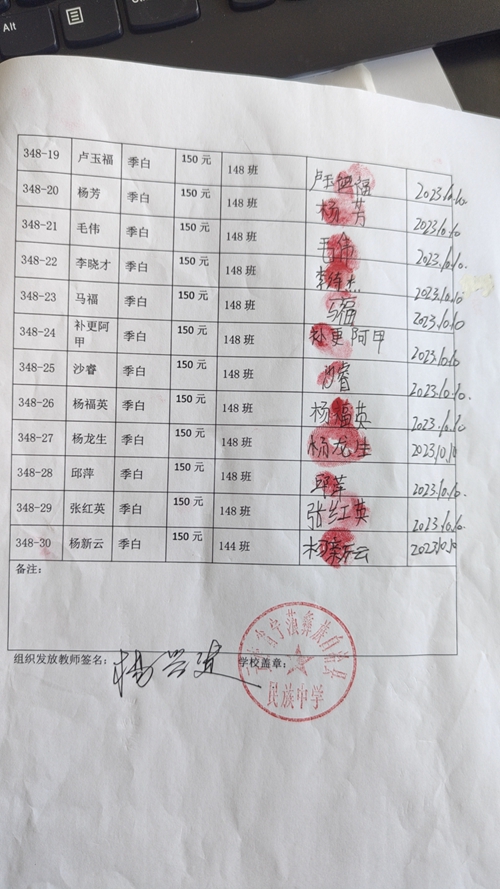 Alt
348-19 卢玉福 季白 150 元 148 班 卢玉福 2023.10.10
348-20 杨芳 季白 150 元 148 班 杨芳 2023.10.10
348-21 毛伟 季白 150 元 148 班 毛伟 2023.10.10.
348-22 李晓才 季白 150 元 148 班 2023.10.10
348-23 马福 季白 150 元 148 班 马福 2023.10.10
348-24 补更阿甲 季白 150 元 148 班 补更阿甲 2023.10.10
348-25 沙睿 季白 150 元 148 班 沙睿 2023.10.10.
348-26 杨福英 季白 150 元 148 班 杨福英 2023.10.10
348-27 杨龙生 季白 150 元 148 班 杨龙生 2023.10.10
348-28 邱萍 季白 150 元 148 班 邱萍 2023.10.10.
348-29 张红英 季白 150 元 148 班 张红英 2023.10.10.
348-30 杨新云 季白 150 元 144 班 杨新云 2023.10.10
备注:
组织发放教师签名: 杨兴建 学校盖章:
云南省宁蒗彝族自治县
民族中学